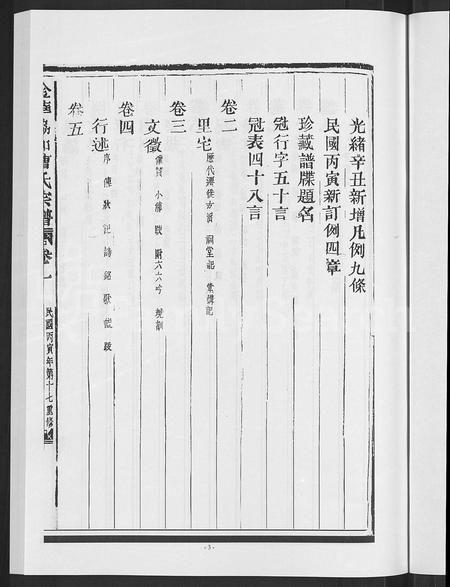 光緒辛丑新增凡例九條
民國丙寅新訂例四章
珍藏譜牒題名
冠行字五十言
冠表四十八言
卷二
里宅 歷代遷徙方派 祠堂記 堂傳記
卷三
文徵
卷四
行述 序 傳 狀 記 誄 銘
卷五
曹氏宗譜 卷一
民國丙寅年第十七重修
·3·